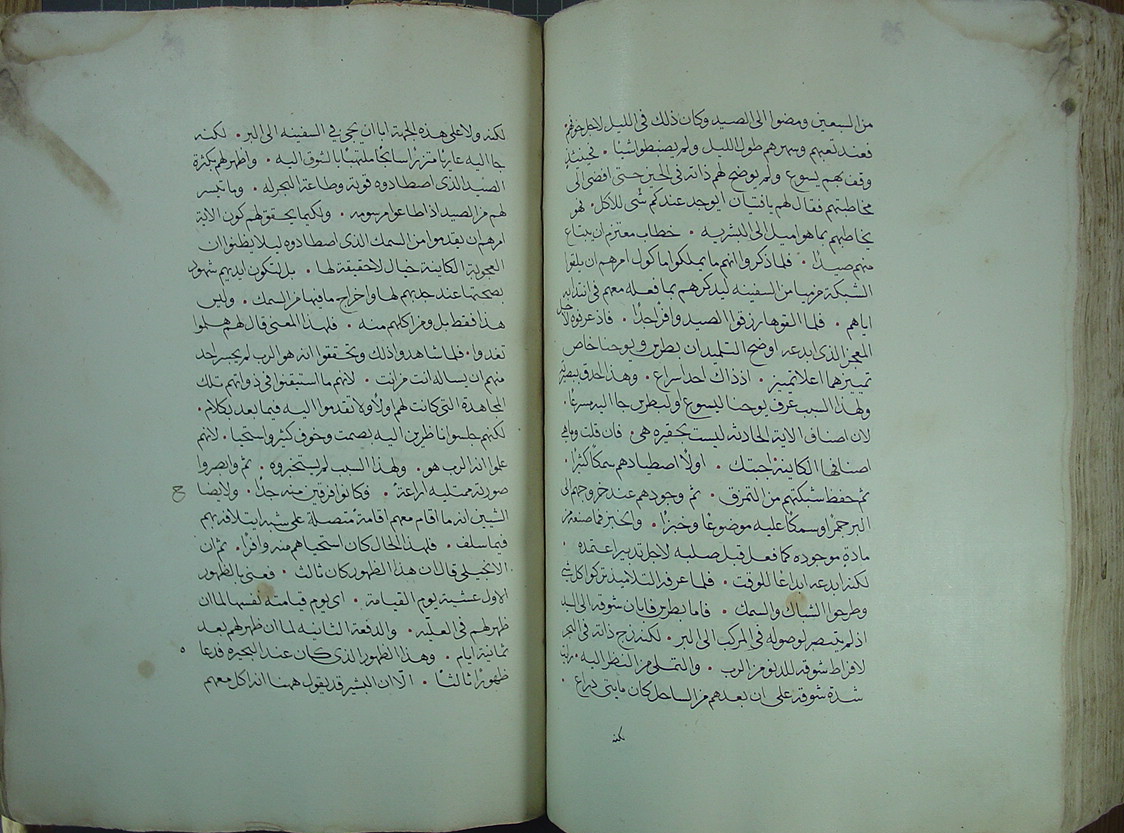 من السبعين ومضوا الى الصيد وكان ذلك فى الليل لاجل خوفهم
فعند تعبهم وسهرهم طول الليل ولم يصطبطوا شيا • فحينئذ
وقف بهم يسوع ولم يوضح لهم ذاته فى الحين حتى افضى الى
مخاطبتهم فقال لهم يا فتيان ايوجد عندكم شى للاكل • فهو
يخاطبهم بما هو اميل الى البشريه • خطاب معتزم ان يبتاع
منهم صيدًا • فلما ذكروا انهم ما يملكوا ماكول امرهم ان يلقوا
الشبكة من يمنا من السفينه ليذكرهم بما فعله معهم فى ابتدا
اياهم • فلما القوها رزقوا الصيد وافرًا جدًا • فاذ عرفوه لاجل
المعجز الذى ابدعه اوضح التلميذان بطرس ويوحنا خاص
تمييزهما اعلا تمييز • اذ ذاك احد اسراع • وهذا احدق تبصرًا
ولهذا السبب عرف يوحنا ليسوع ولبطرس جا اليه مسرعًا •
لان اصناف الاية الحادثه ليست بحقيره هى • فان قلت وما هى
اصنافها الكاينة اجبتك • اولًا اصطيادهم سمكًا كثيرًا •
ثم حفظ شبكتهم من التمزق • ثم وجودهم عند خروجهم الى
البر جمرًا وسمكًا عليه موضوعًا وخبزًا • والخبز فما صنعه من
مادة موجوده كما فعل قبل صلبه لاجل تدبير اعتمده •
لكنه ابدعه ابداعًا للوقت • فلما عرفه التلاميذ تركوا كل شى
وطرحوا الشباك والسمك • فاما بطرس فابان شوقه الى السيد
اذ لم يتصبر لوصوله فى المركب الى البر • لكنه زج ذاته فى البحر
لافراط شوقه للدنو من الرب • والتملى من النظر اليه من
شدة شوقه على ان بعدهم من الساحل كان مايتى ذراع •
لكنه
لكنه ولا على هذه الجهة ابا ان يجى فى السفينه الى البر • لكنه
جا اليه عاريًا متزرًا سابحًا ملتهبًا بالشوق اليه • واظهر لهم بكثرة
الصيد الذى اصطادوه قوته وطاعة البحر له • وما تيسر
لهم من الصيد اذ اطاعوا مرسومه • ولكيما يحقق لهم كون الاية
امرهم ان يقدموا من السمك الذى اصطادوه ليلا يظنوا ان
العجوبة الكاينة خيال لا حقيقة لها • بل لتكون لديهم شهود
بصحتها عند جذبهم لها واخراج ما فيها من السمك • وليس
هذا فقط بل ومن اكلهم منه • فلهذا المعنى قال لهم هلموا
تغدوا • فلما شاهدوا ذلك وتحققوا انه هو الرب لم يجسر احد
منهم ان يساله انت من انت • لانهم ما استبقوا فى ذواتهم تلك
المجاهدة التى كانت لهم اولًا ولا تقدموا اليه فيما بعد بكلام •
لكنهم جلسوا ناظرين اليه بصمت وخوف كثير واستحيا • لانهم
علموا انه الرب هو • ولهذا السبب لم يستخبروه • ثم وابصروا
صورته ممتليه اراعة • فكانوا فرقين منه جدًا • ولا يضا
الشين انه ما اقام معهم اقامة متصلة على شبه ايتلافه بهم
فيما سلف • فلهذا الحال كان استحياهم منه وافرًا • ثم ان
الانجيلى قال ان هذا الظهور كان ثالث • فعنى بالظهور
الاول عشية يوم القيامة • اى يوم قيامته نفسها لما ان
ظهر لهم فى العليّه • والدفعة الثانيه لما ان ظهر لهم بعد
ثمانية ايام • وهذا الظهور الذى كان عند البحيره فدعا
ظهورًا ثالثًا • الّا ان المبشر قد يقول ههنا انه اكل معهم